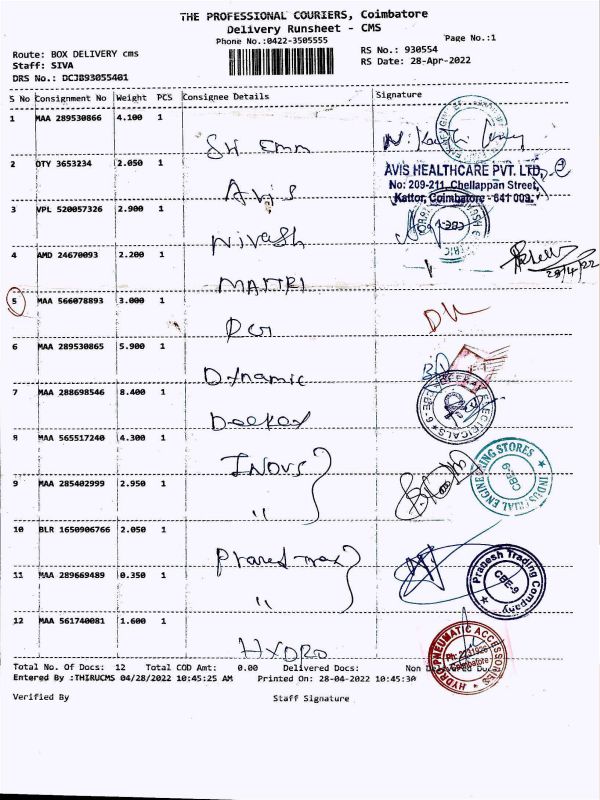 THE PROFESSIONAL COURIERS, Coimbatore
Delivery Runsheet - CMS
Phone No.:0422-3505555 Page No.:1
Route: BOX DELIVERY cms RS No.: 930554
Staff: SIVA RS Date: 28-Apr-2022
DRS No.: DCJB93055401
S No Consignment No Weight PCS Consignee Details Signature
1 MAA 289530866 4.100 1
2 OTY 3653234 2.050 1
Avis
AVIS HEALTHCARE PVT. LTD.
No: 209-211, Chellappan Street,
Kattor, Coimbatore - 641 009.
3 VPL 520057326 2.900 1
Nivash
4 AMD 24670093 2.200 1
MAITRI
28/4/22
5 MAA 566078893 3.000 1
6 MAA 289530865 5.900 1
Dynamic
7 MAA 288698546 8.400 1
Deepak
DEEPAK ELECTRICALS CBE-9
8 MAA 565517240 4.300 1
INOVS
INDUSTRIAL ENGINEERING STORES CBE-9
9 MAA 285402999 2.950 1
"
10 BLR 1650906766 2.050 1
11 MAA 289669489 0.350 1
"
Pranesh Trading Company CBE-9
12 MAA 561740081 1.600 1
HYDRO
HYDRO PNEUMATIC ACCESSORIES Coimbatore
Total No. Of Docs: 12 Total COD Amt: 0.00 Delivered Docs: Non Delivered Docs
Entered By :THIRUCMS 04/28/2022 10:45:25 AM Printed On: 28-04-2022 10:45:30
Verified By Staff Signature